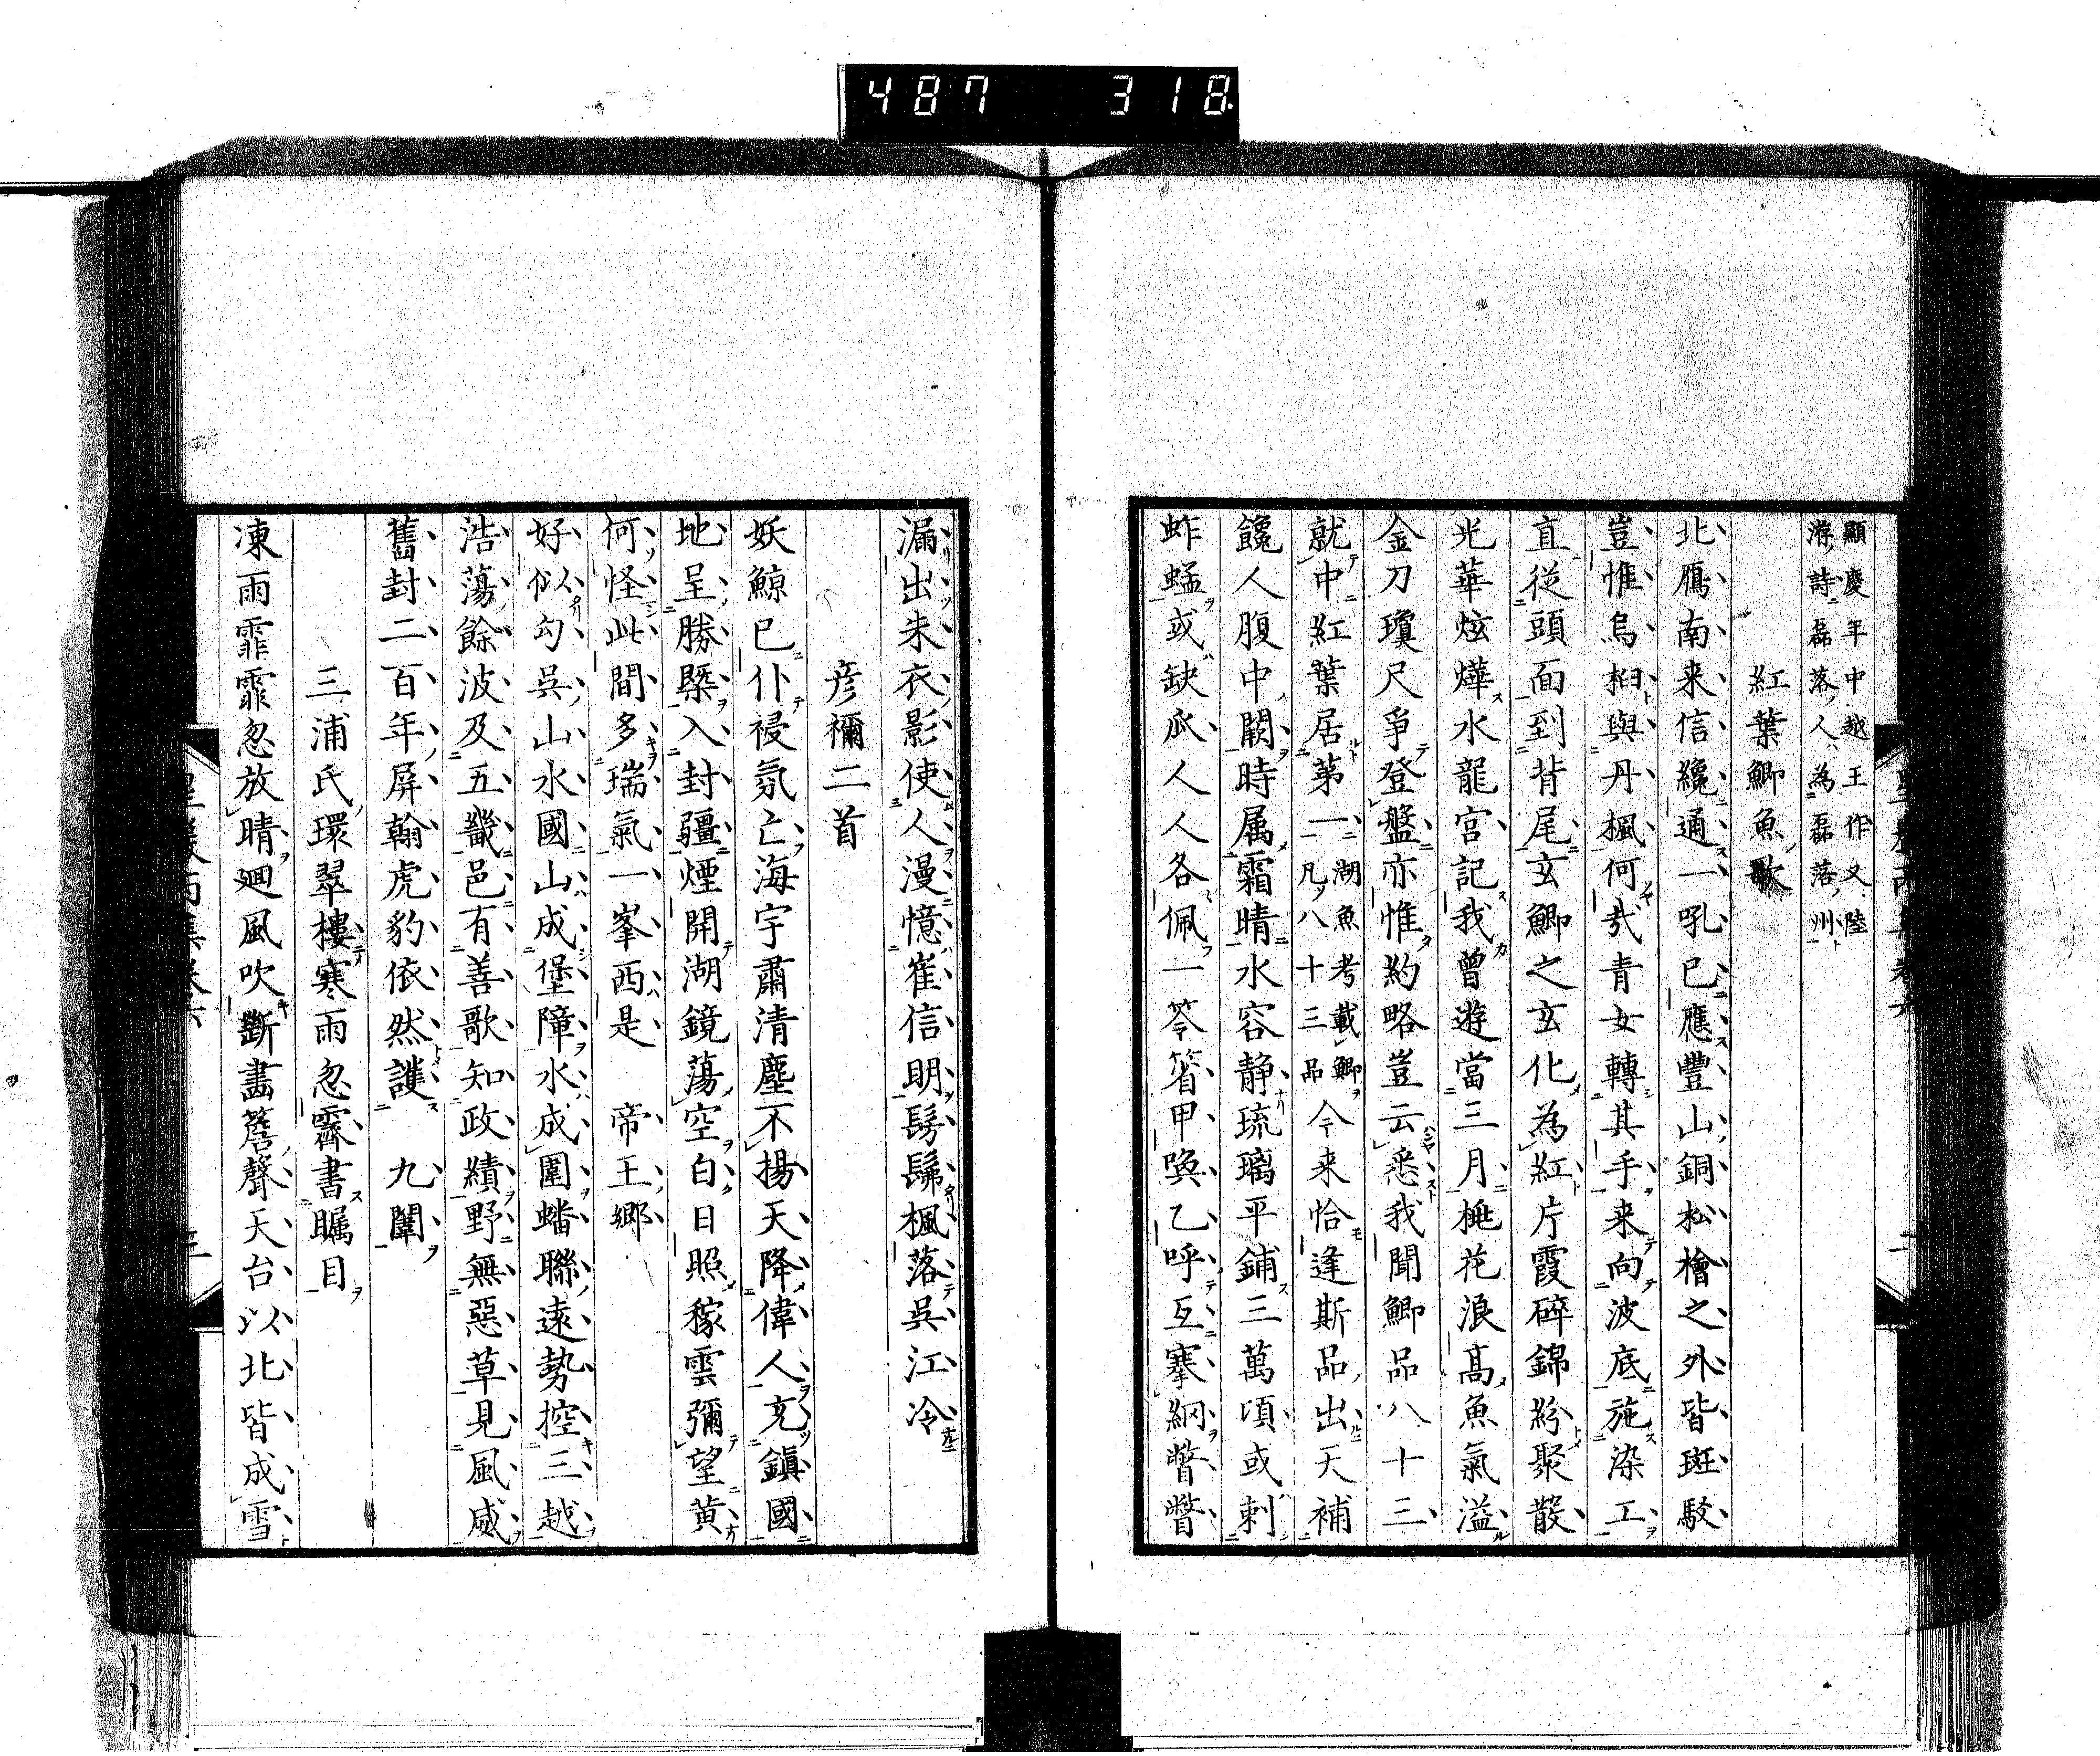 487 318
顯慶年中越王作又陸
游詩磊落人為磊落州
紅葉鯽魚歌
北鴈南来信纔通一吼已應豐山銅松檜之外皆斑駁
豈惟烏桕與丹楓何哉青女轉其手来向波底施染工
直從頭面到背尾玄鯽之玄化為紅片霞碎錦紛聚散
光華炫燁水龍宮記我曾遊當三月桃花浪高魚氣溢
金刀瓊尺爭登盤亦惟約略豈云悉我聞鯽品八十三
就中紅葉居第一湖魚考載鯽凡八十三品今来恰逢斯品出天補
饞人腹中闕時属霜晴水容静琉璃平鋪三萬頃或刺
蚱蜢或缺瓜人人各佩一笭箵甲喚乙呼互搴網瞥瞥
漏出朱衣影使人漫憶崔信明髣髴楓落吳江冷
彦禰二首
妖鯨已仆祲氛亡海宇肅清塵不揚天降偉人充鎮國
地呈勝槩入封疆煙開湖鏡蕩空白日照稼雲彌望黄
何怪此間多瑞氣一峯西是 帝王郷
好似勾吳山水國山成堡障水成圍蟠聯遠勢控三越
浩蕩餘波及五畿邑有善歌知政績野無惡草見風威
舊封二百年屏翰虎豹依然護 九闈
三浦氏環翠樓寒雨忽霽書矚目
凍雨霏霏忽放晴廻風吹斷畫簷聲天台以北皆成雪